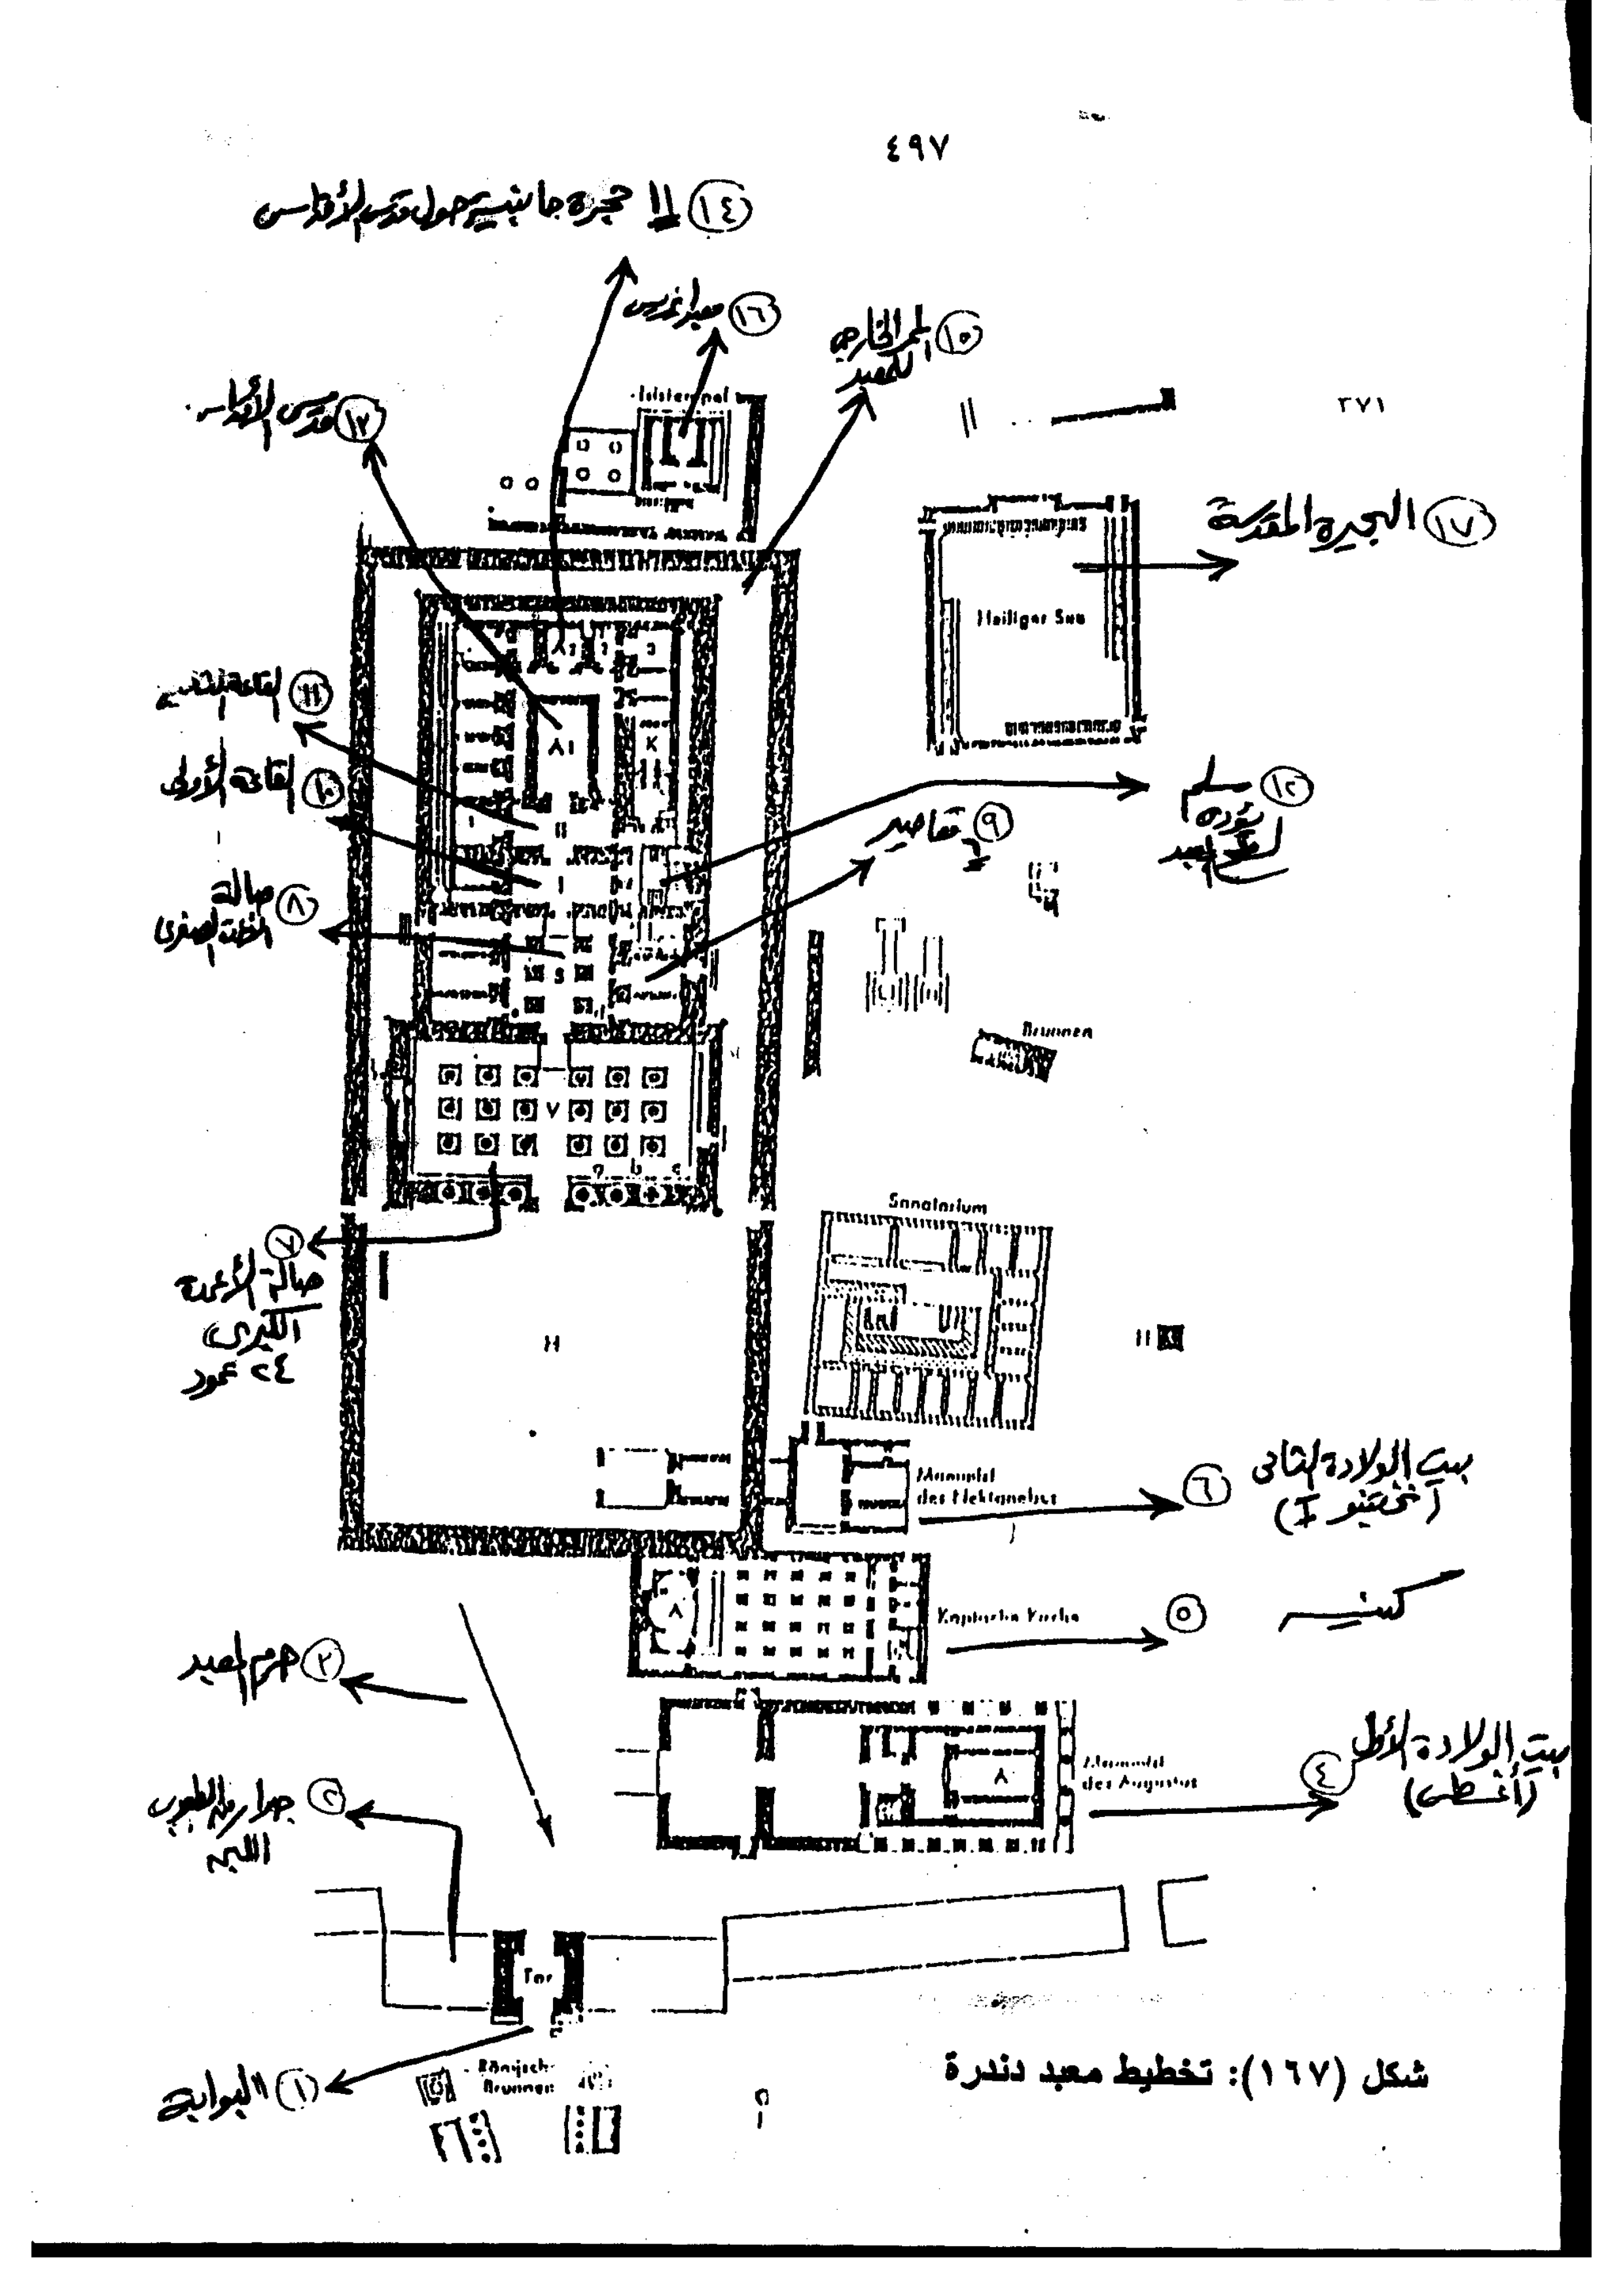 ٤٩٧
١٤ ١١ حجرة جانبية حول قدس الأقداس
١٦ معبد إيزيس
١٥ الممر الخارجى
للمعبد
١٣ قدس الأقداس
Isistempel
٢٧١
١٧ البحيرة المقدسة
Heiliger See
١١ القاعة الثانية
١٠ القاعة الأولى
١٢ سلم
يؤدى
لسطح المعبد
٩ ٦ مقاصير
٨ صالة
Brunnen
II
I
S
V
a b c
K
٧
صالة الأعمدة
الكبرى
٢٤ عمود
Sanatorium
H
H
Mammisi
des Nektanebos
٦ بيت الولادة الثانى
(نختنبو I)
Koptische Kirche
٥ كنيسه
٣ حرم المعبد
Mammisi
des Augustus
٤ بيت الولادة الأول
(أغسطس)
٢ جدار من الطوب
اللبن
Tor
١ البوابة
Römisch.
Brunnen
شكل (١٦٧): تخطيط معبد دندرة